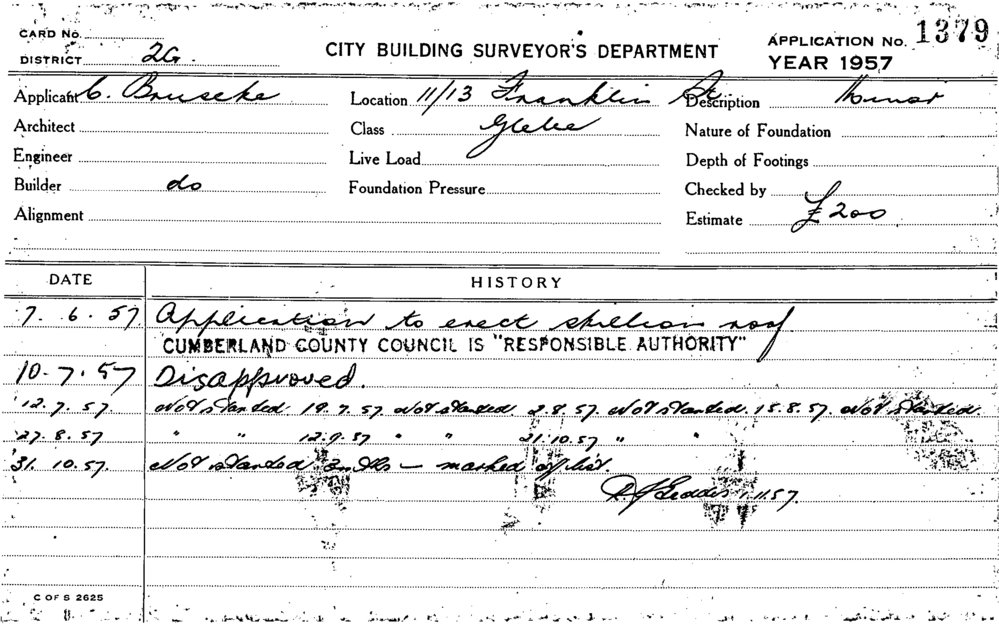 CARD No.
DISTRICT 2G.
CITY BUILDING SURVEYOR'S DEPARTMENT
APPLICATION No. 1379
YEAR 1957
Applicant C. Bruseke Location 11/13 Franklin St Description Minor
Architect Class Glebe Nature of Foundation
Engineer Live Load Depth of Footings
Builder do Foundation Pressure Checked by
Alignment Estimate £200
DATE HISTORY
7. 6. 57 Application to erect skillion roof
CUMBERLAND COUNTY COUNCIL IS "RESPONSIBLE AUTHORITY"
10-7-57 Disapproved.
12.7.57. Not started. 19.7.57. Not started. 2.8.57. Not started. 15.8.57. Not started.
27.8.57 " " 12.9.57 " " 21.10.57 " "
31.10.57. Not started — marked off list.
1.11.57.
C OF S 2625